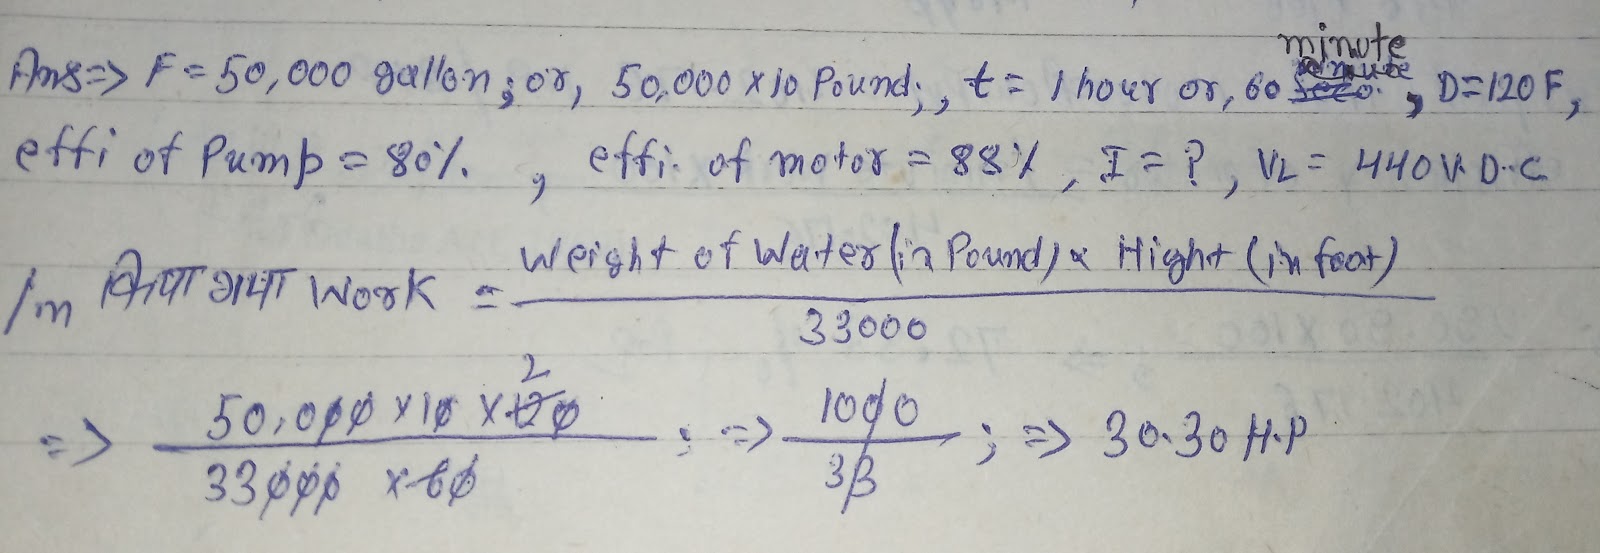 Ans=> F = 50,000 gallon; or, 50,000 x 10 Pound;, t = 1 hour or, 60 minute, D=120F,
effi of Pump = 80%. , effi. of motor = 88%, I = ?, VL = 440V.D.C
/m किया गया Work = Weight of Water (in Pound) x Hight (in foot) / 33000
=> 50,000 x 10 x 120 2 / 33000 x 60 ; => 1000 / 33 ; => 30.30 H.P